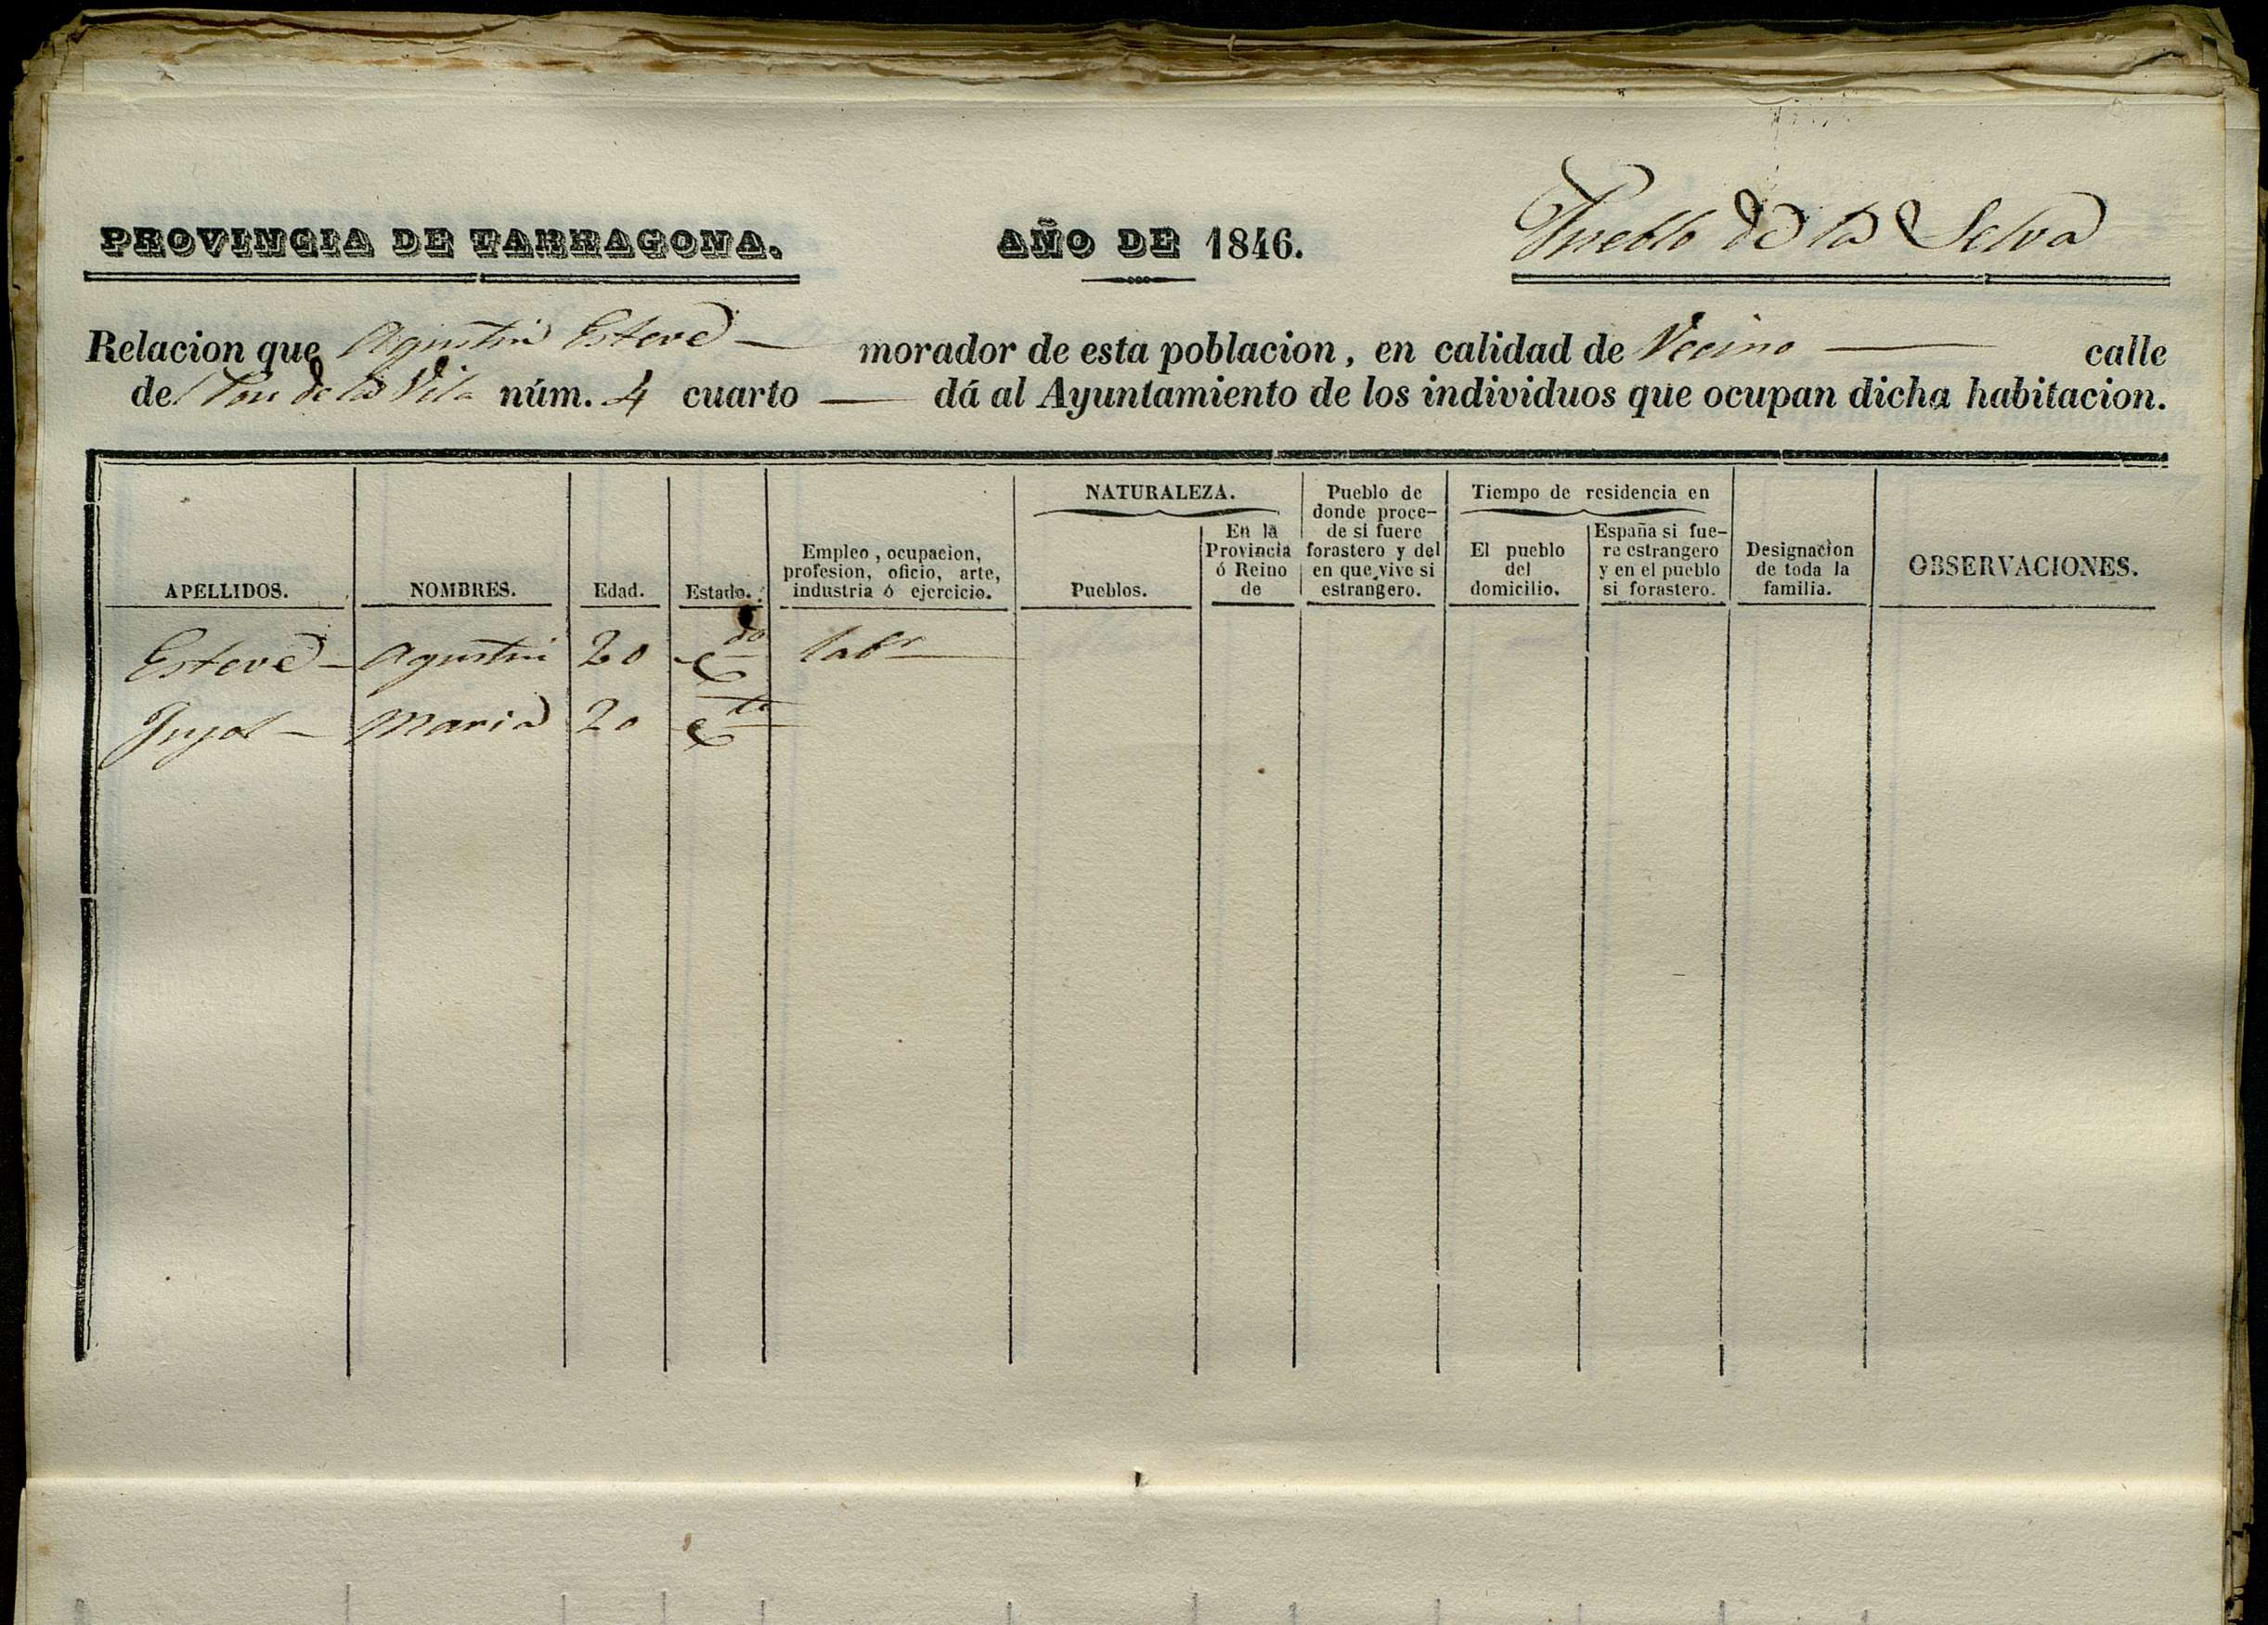 PROVINCIA DE TARRAGONA.
AÑO DE 1846.
Pueblo de la Selva
Relacion que Agustin Esteve — morador de esta poblacion, en calidad de Vecino — calle
del Pou de la Vila núm. 4 cuarto — dá al Ayuntamiento de los individuos que ocupan dicha habitacion.
APELLIDOS.
NOMBRES.
Edad.
Estado.
Empleo, ocupacion,
profesion, oficio, arte,
industria ó ejercicio.
NATURALEZA.
Pueblos.
En la
Provincia
ó Reino
de
Pueblo de
donde proce-
de si fuere
forastero y del
en que vive si
estrangero.
Tiempo de residencia en
El pueblo
del
domicilio.
España si fue-
re estrangero
y en el pueblo
si forastero.
Designacion
de toda la
familia.
OBSERVACIONES.
Esteve — Agustin 20 Cdo labr
Jujol — Maria 20 Cda